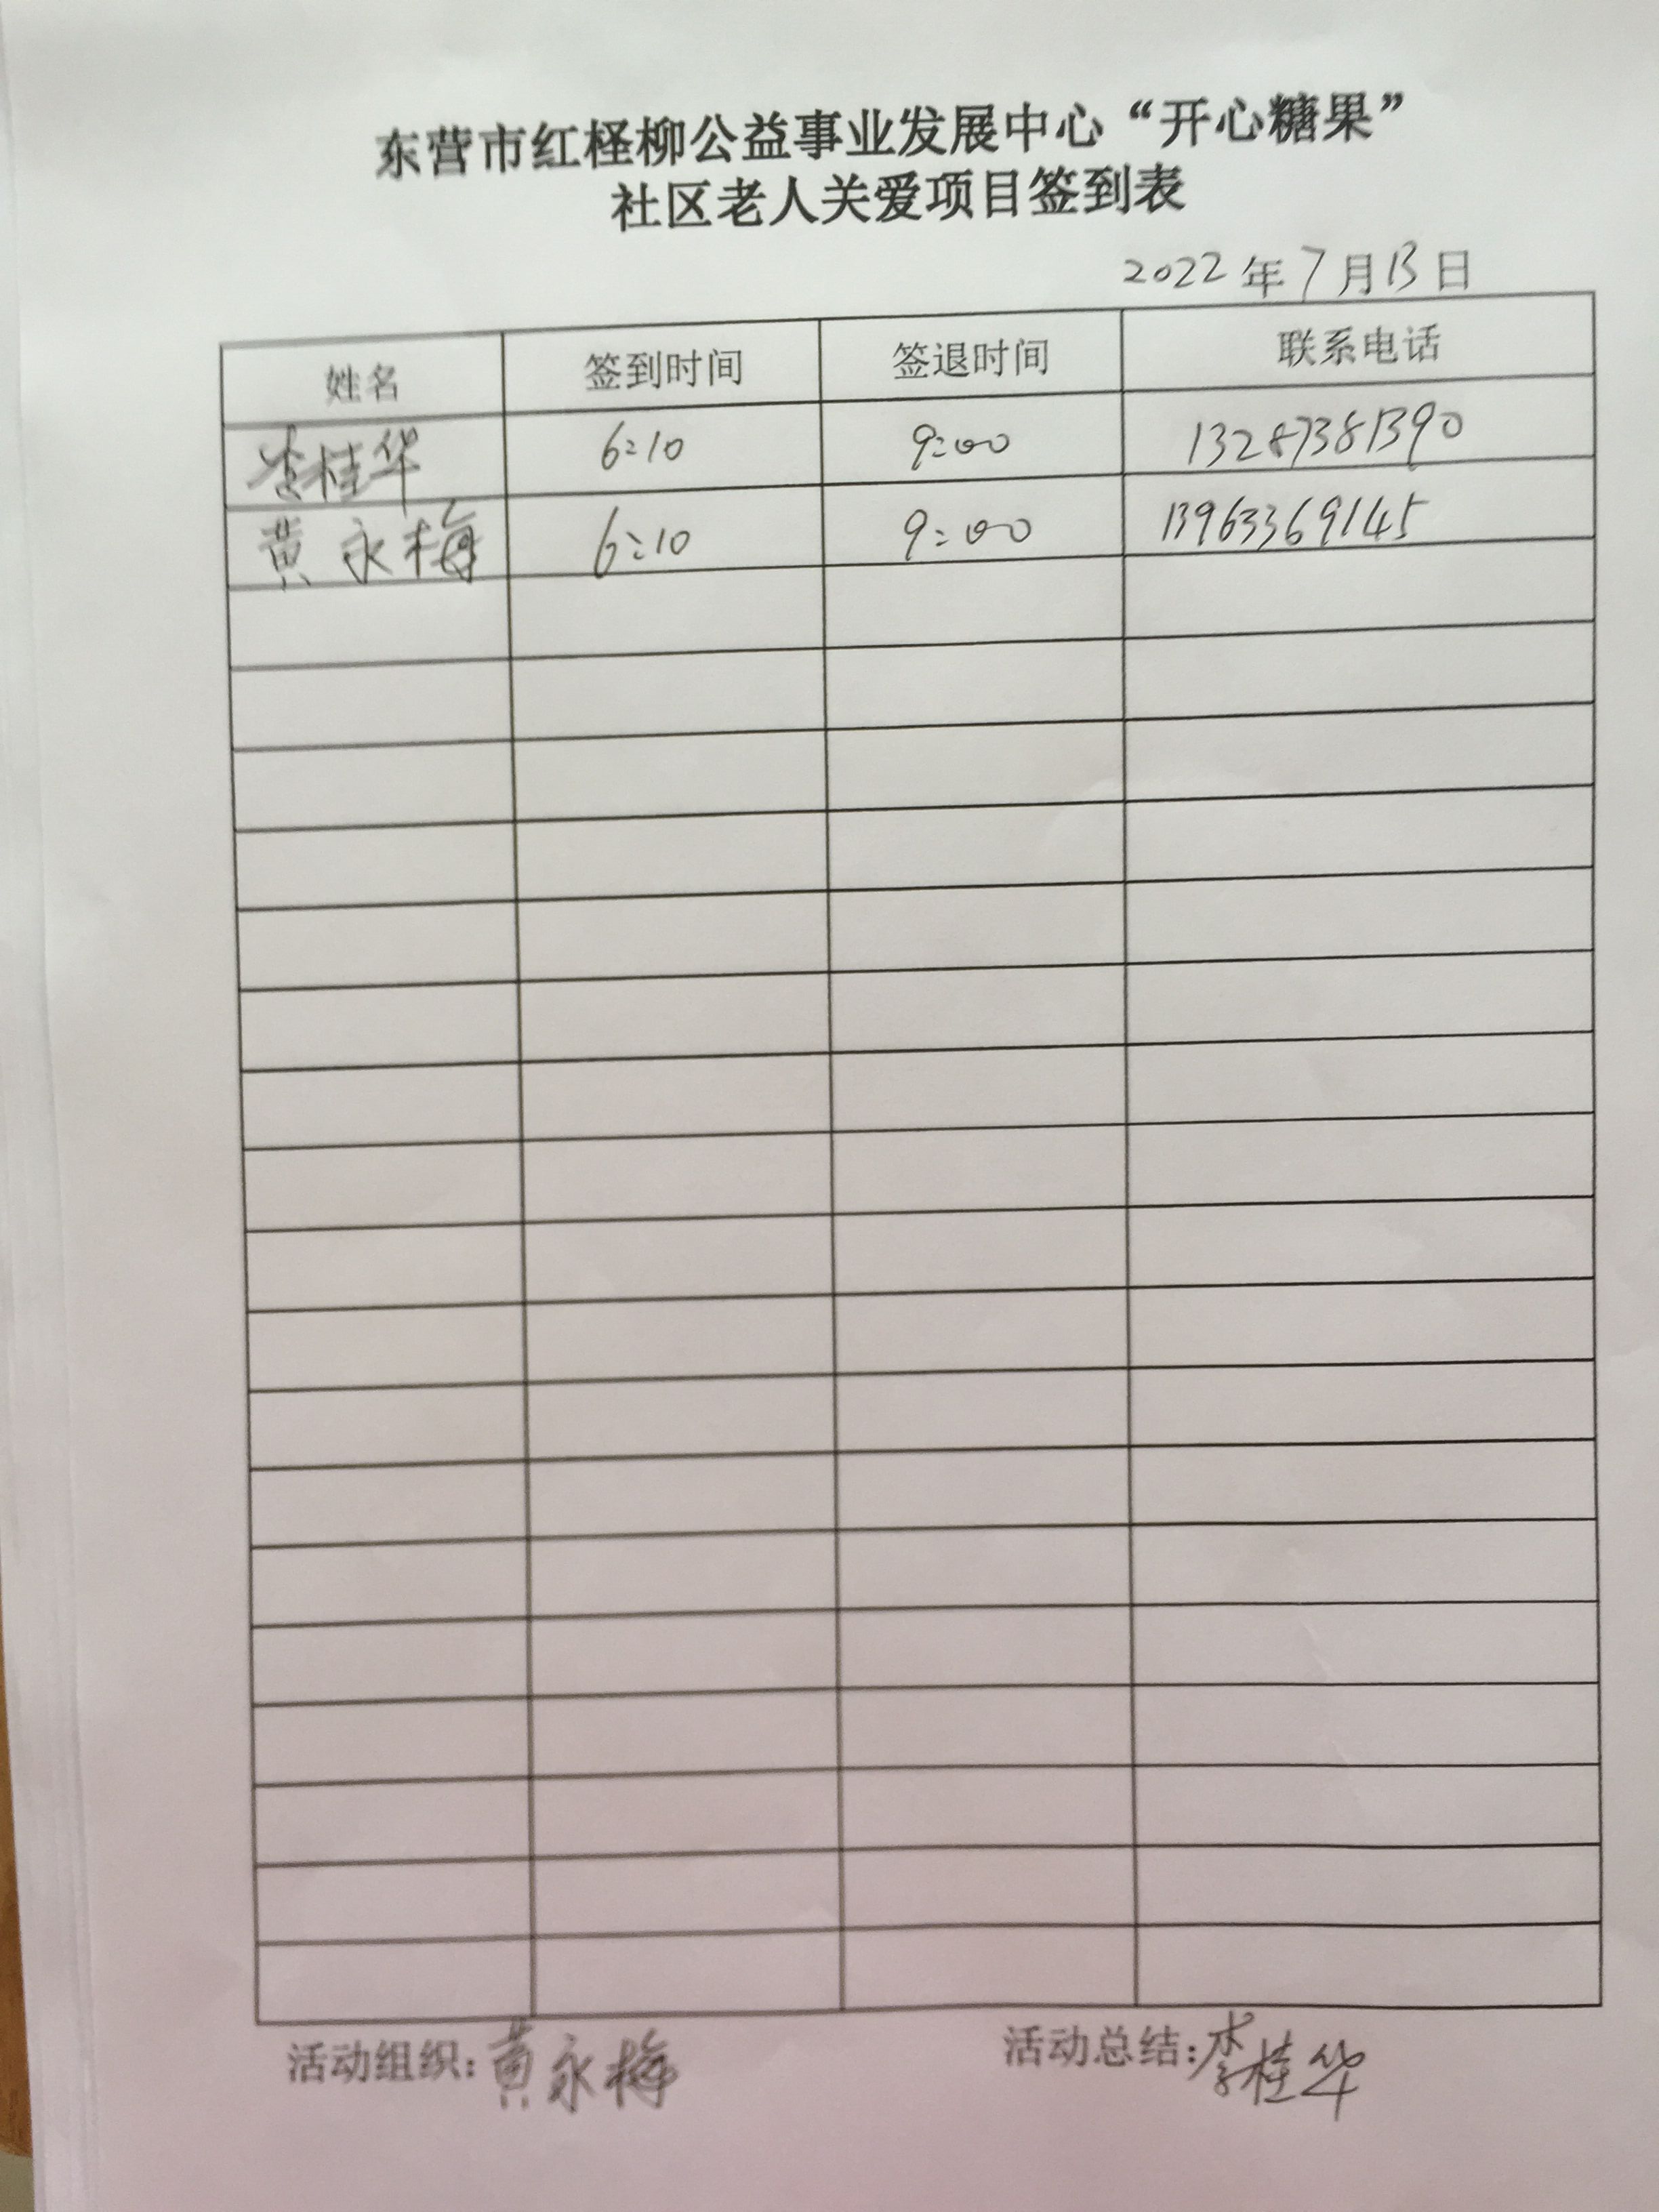 东营市红柽柳公益事业发展中心“开心糖果”
社区老人关爱项目签到表
2022年7月13日
姓名 签到时间 签退时间 联系电话
李桂华 6:10 9:00 13287381390
黄永梅 6:10 9:00 13963369145
活动组织:黄永梅 活动总结:李桂华